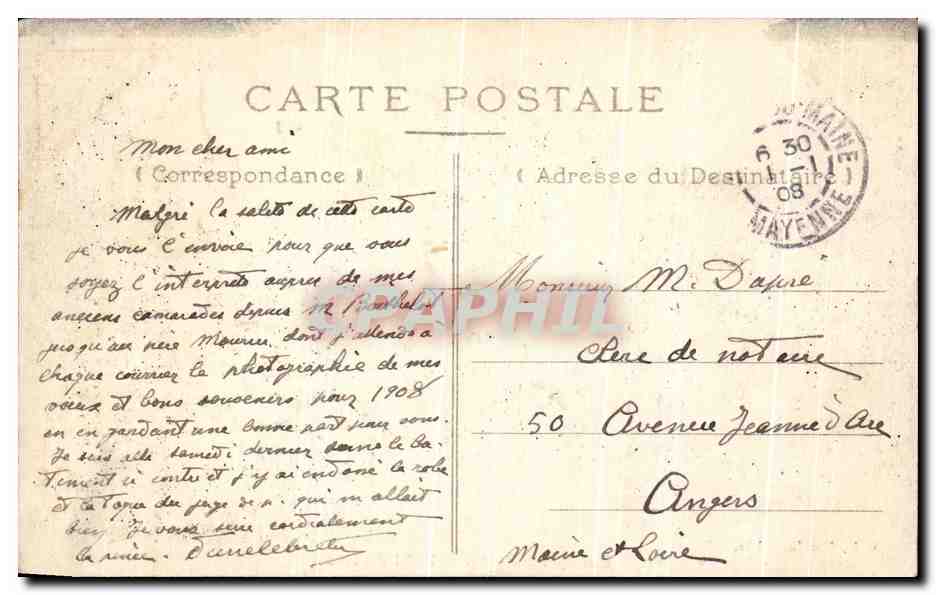 CARTE POSTALE
Mon cher ami
(Correspondance)
Malgré la saleté de cette carte
je vous l'envoie pour que vous
soyez l'interprète auprès de mes
anciens camarades depuis M Berthelot
jusqu'au père Meurier dont j'attends a
chaque courrier la photographie de mes
voeux et bons souvenirs pour 1908
en en gardant une bonne part pour vous.
Je suis allé samedi dernier dans le ba-
timent ci contre et j'y ai endossé la robe
et la toque du juge de p. qui m'allait
bien Je vous serre cordialement
la main.
(Adresse du Destinataire)
MAINE
6 30
1 - 1
08
MAYENNE
Monsieur M. Dapré
Clerc de notaire
50 Avenue Jeanne d'Arc
Angers
Maine et Loire
DELCAMPE